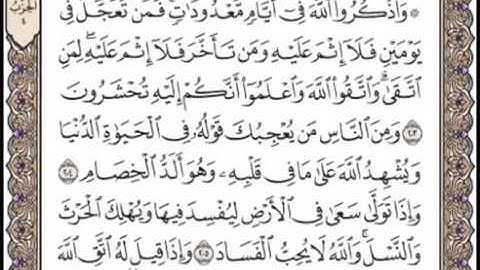 الحزب
٤
۞ وَاذْكُرُوا اللَّهَ فِي أَيَّامٍ مَّعْدُودَاتٍ فَمَن تَعَجَّلَ فِي
يَوْمَيْنِ فَلَا إِثْمَ عَلَيْهِ وَمَن تَأَخَّرَ فَلَا إِثْمَ عَلَيْهِ لِمَنِ
اتَّقَىٰ وَاتَّقُوا اللَّهَ وَاعْلَمُوا أَنَّكُمْ إِلَيْهِ تُحْشَرُونَ
٢٠٣ وَمِنَ النَّاسِ مَن يُعْجِبُكَ قَوْلُهُ فِي الْحَيَوٰةِ الدُّنْيَا
وَيُشْهِدُ اللَّهَ عَلَىٰ مَا فِي قَلْبِهِ وَهُوَ أَلَدُّ الْخِصَامِ ٢٠٤
وَإِذَا تَوَلَّىٰ سَعَىٰ فِي الْأَرْضِ لِيُفْسِدَ فِيهَا وَيُهْلِكَ الْحَرْثَ
وَالنَّسْلَ وَاللَّهُ لَا يُحِبُّ الْفَسَادَ ٢٠٥ وَإِذَا قِيلَ لَهُ اتَّقِ اللَّهَ